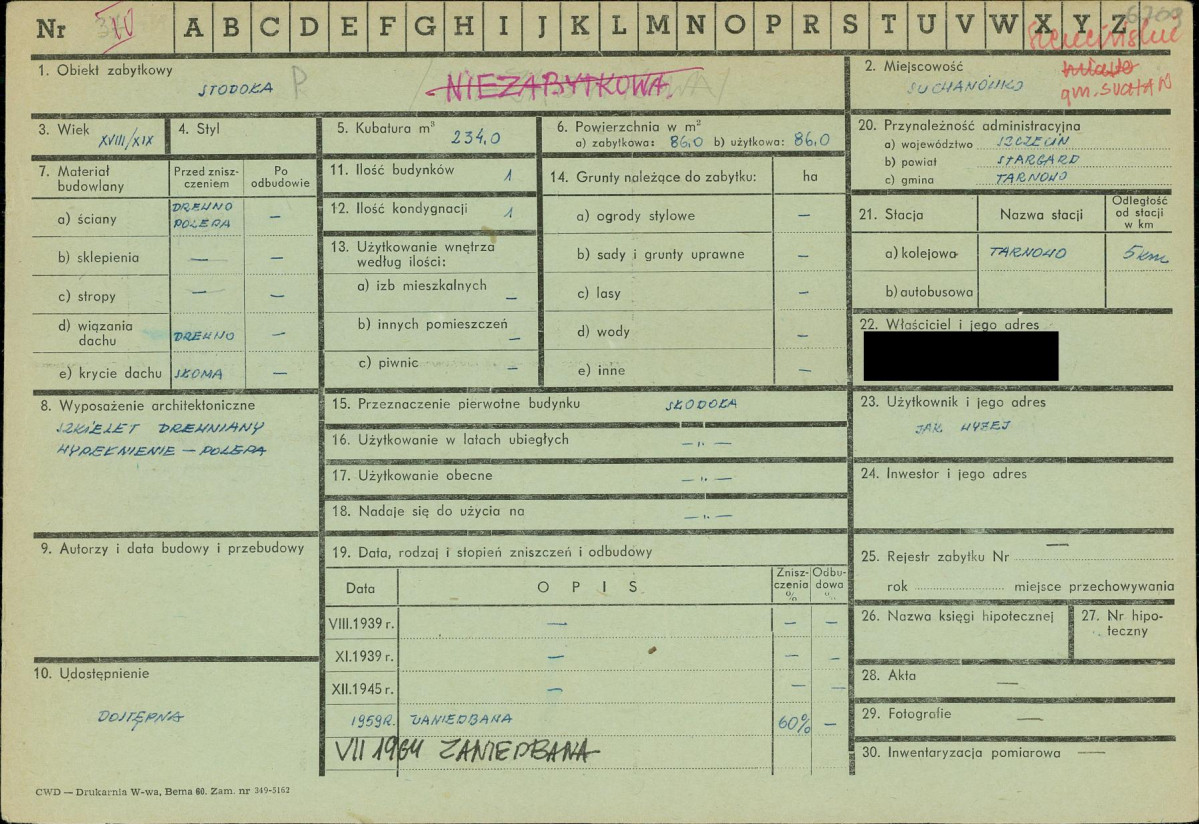 Nr IV A B C D E F G H I J K L M N O P R S T U V W X Y Z 6709
1. Obiekt zabytkowy
STODOŁA P
NIEZABYTKOWA
2. Miejscowość
SUCHANÓWKO
miasto
gm. SUCHAŃ
3. Wiek XVIII/XIX
4. Styl
5. Kubatura m³ 234,0
6. Powierzchnia w m²
a) zabytkowa: 86,0 b) użytkowa: 86,0
20. Przynależność administracyjna
a) województwo SZCZECIN
b) powiat STARGARD
c) gmina TARNOWO
7. Materiał budowlany
Przed znisz-
czeniem
Po
odbudowie
a) ściany DREWNO —
POLEPA
b) sklepienia — —
c) stropy — —
d) wiązania
dachu DREWNO —
e) krycie dachu SŁOMA —
11. Ilość budynków 1
12. Ilość kondygnacji 1
13. Użytkowanie wnętrza
według ilości:
a) izb mieszkalnych —
b) innych pomieszczeń —
c) piwnic —
14. Grunty należące do zabytku: ha
a) ogrody stylowe —
b) sady i grunty uprawne —
c) lasy —
d) wody —
e) inne —
21. Stacja Nazwa stacji
Odległość
od stacji
w km
a) kolejowa TARNOWO 5 km
b) autobusowa
22. Właściciel i jego adres
8. Wyposażenie architektoniczne
SZKIELET DREWNIANY
WYPEŁNIENIE — POLEPA
15. Przeznaczenie pierwotne budynku SŁODOŁA
16. Użytkowanie w latach ubiegłych — „ —
17. Użytkowanie obecne — „ —
18. Nadaje się do użycia na — „ —
23. Użytkownik i jego adres
JAK WYŻEJ
24. Inwestor i jego adres
9. Autorzy i data budowy i przebudowy
19. Data, rodzaj i stopień zniszczeń i odbudowy
Data OPIS
Znisz-
czenia
%
Odbu-
dowa
%
VIII.1939 r. — — —
XI.1939 r. — — —
XII.1945 r. — — —
1959R. ZANIEDBANA 60% —
VII 1964 ZANIEDBANA
25. Rejestr zabytku Nr —
rok miejsce przechowywania
26. Nazwa księgi hipotecznej
27. Nr hipo-
teczny
10. Udostępnienie
DOSTĘPNA
28. Akta —
29. Fotografie —
30. Inwentaryzacja pomiarowa —
CWD — Drukarnia W-wa, Bema 60. Zam. nr 349-5162